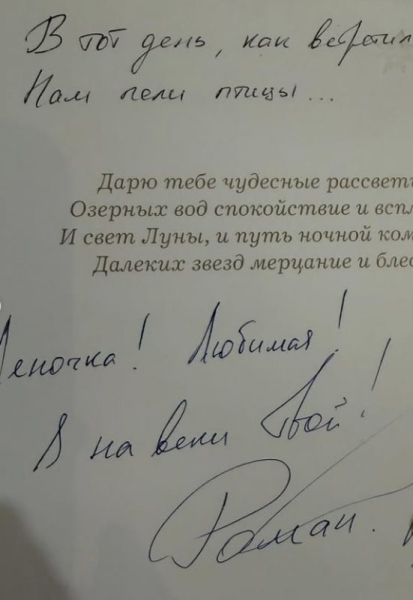 В тот день, как встретил
Нам пели птицы...
Дарю тебе чудесные рассветы
Озерных вод спокойствие и вспл
И свет Луны, и путь ночной ком
Далеких звезд мерцание и блес
Леночка! Любимая!
Я на веки Твой!
Роман.